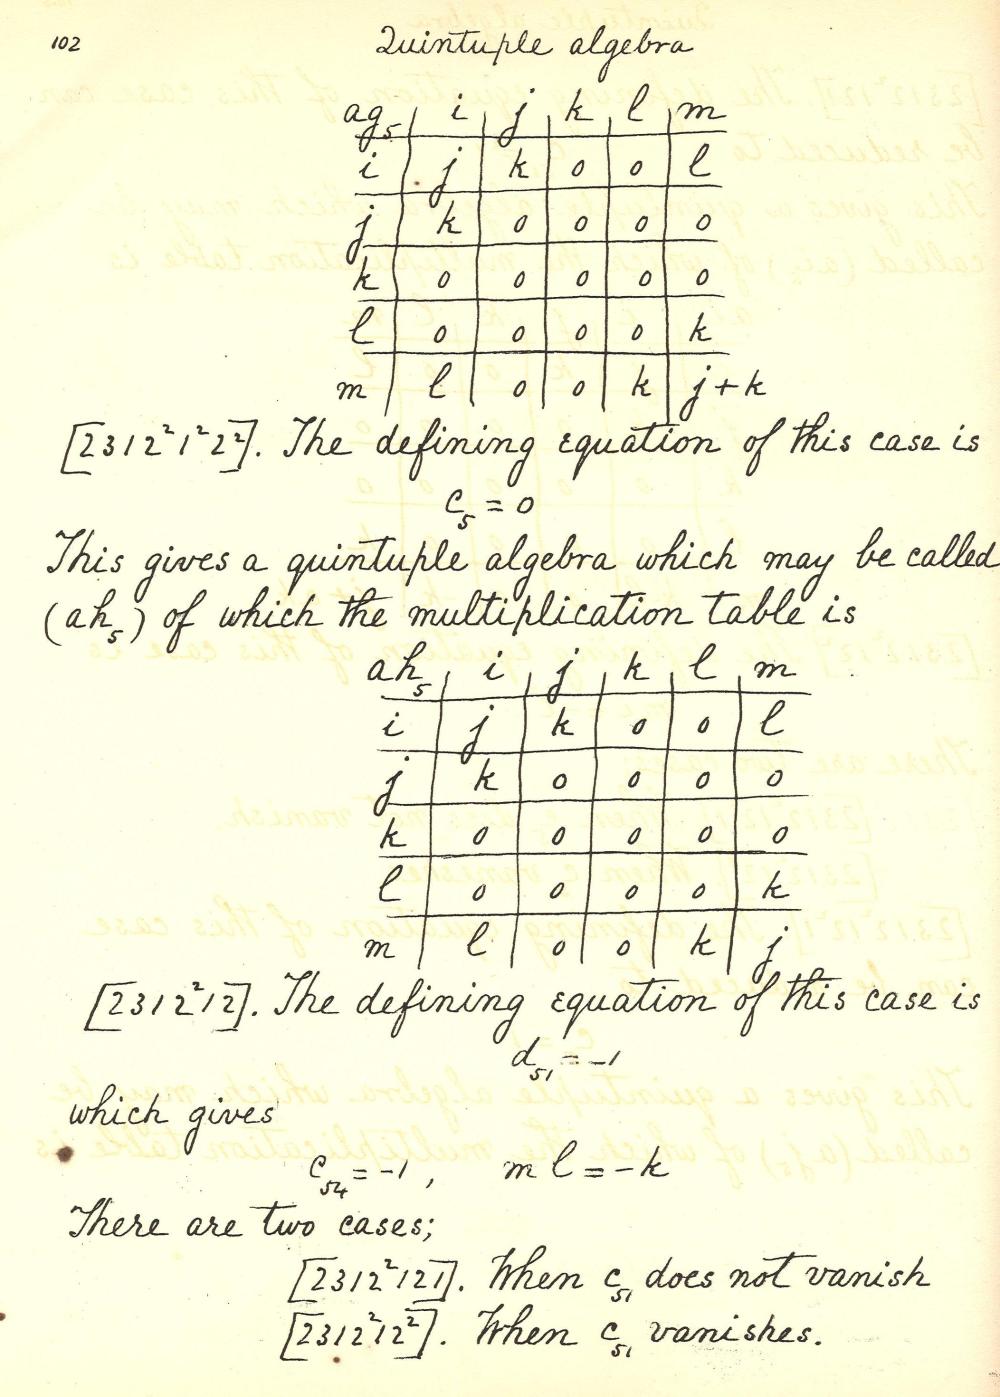 102 Quintuple algebra
ag₅ i j k l m
i j k 0 0 l
j k 0 0 0 0
k 0 0 0 0 0
l 0 0 0 0 k
m l 0 0 k j+k
[2312²1²2²]. The defining equation of this case is
c₅ = 0
This gives a quintuple algebra which may be called
(ah₅) of which the multiplication table is
ah₅ i j k l m
i j k 0 0 l
j k 0 0 0 0
k 0 0 0 0 0
l 0 0 0 0 k
m l 0 0 k j
[2312²12]. The defining equation of this case is
d₅₁ = -1
which gives
c₅₄ = -1, ml = -k
There are two cases;
[2312²121]. When c₅₁ does not vanish
[2312²12²]. When c₅₁ vanishes.